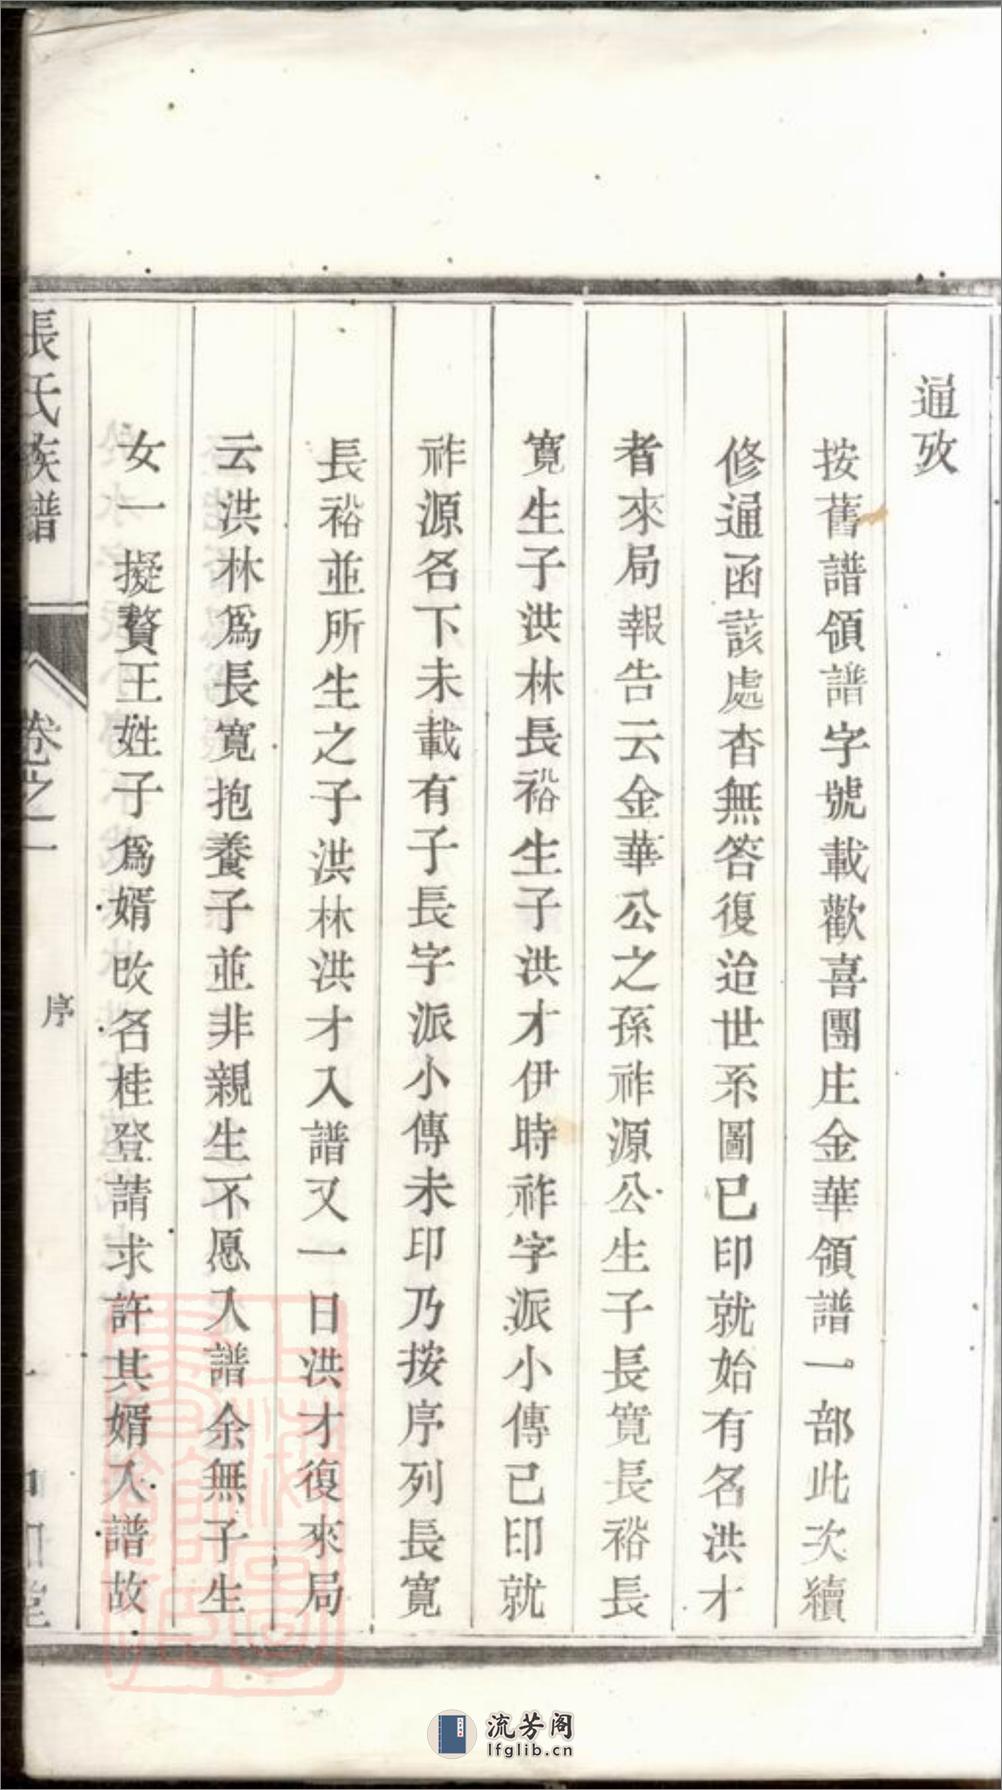 通攷
按舊譜領譜字號載歡喜團庄金華領譜一部此次續
修通函該處杳無答復迨世系圖已印就始有名洪才
者來局報告云金華公之孫祚源公生子長寬長裕長
寬生子洪林長裕生子洪才伊時祚字派小傳已印就
祚源名下未載有子長字派小傳未印乃按序列長寬
長裕並所生之子洪林洪才入譜又一日洪才復來局
云洪林爲長寬抱養子並非親生不愿入譜余無子生
女一擬贅王姓子爲婿改名桂登請求許其婿入譜故
張氏族譜
卷之一
序
流芳阁
lfglib.cn